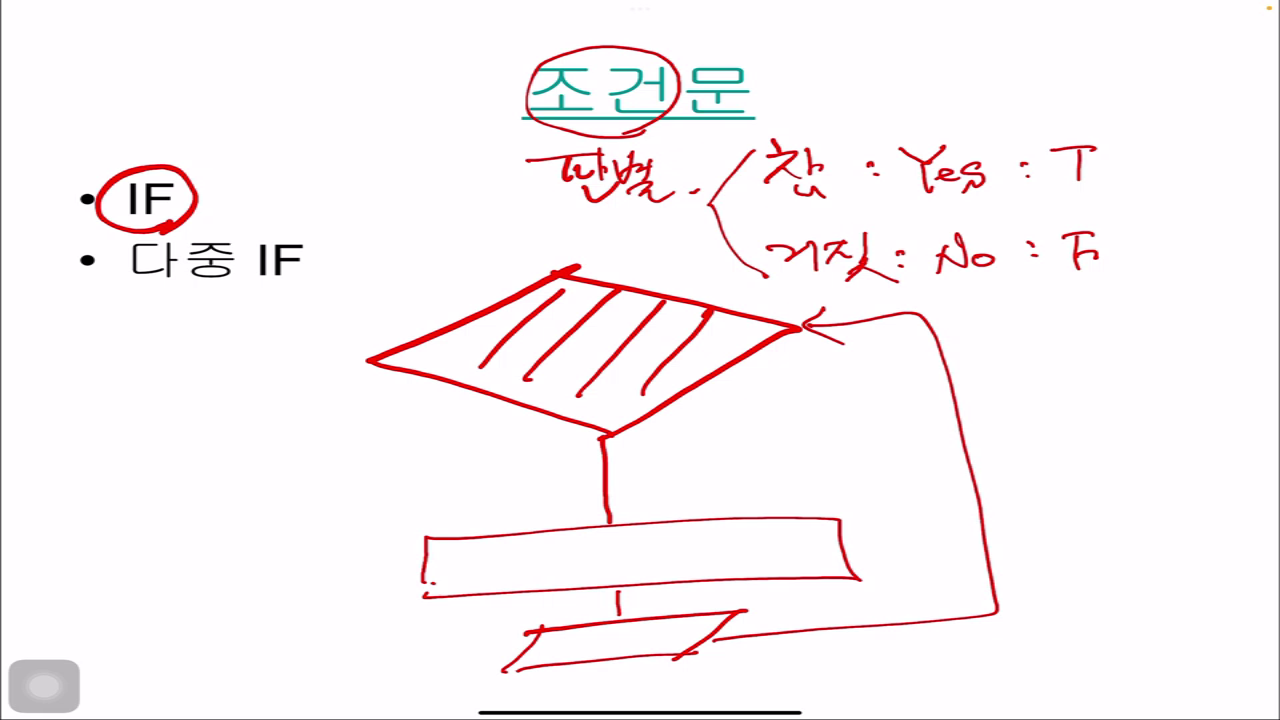 조건문
판별. 참 : Yes : T
거짓 : No : F
• IF
• 다중 IF